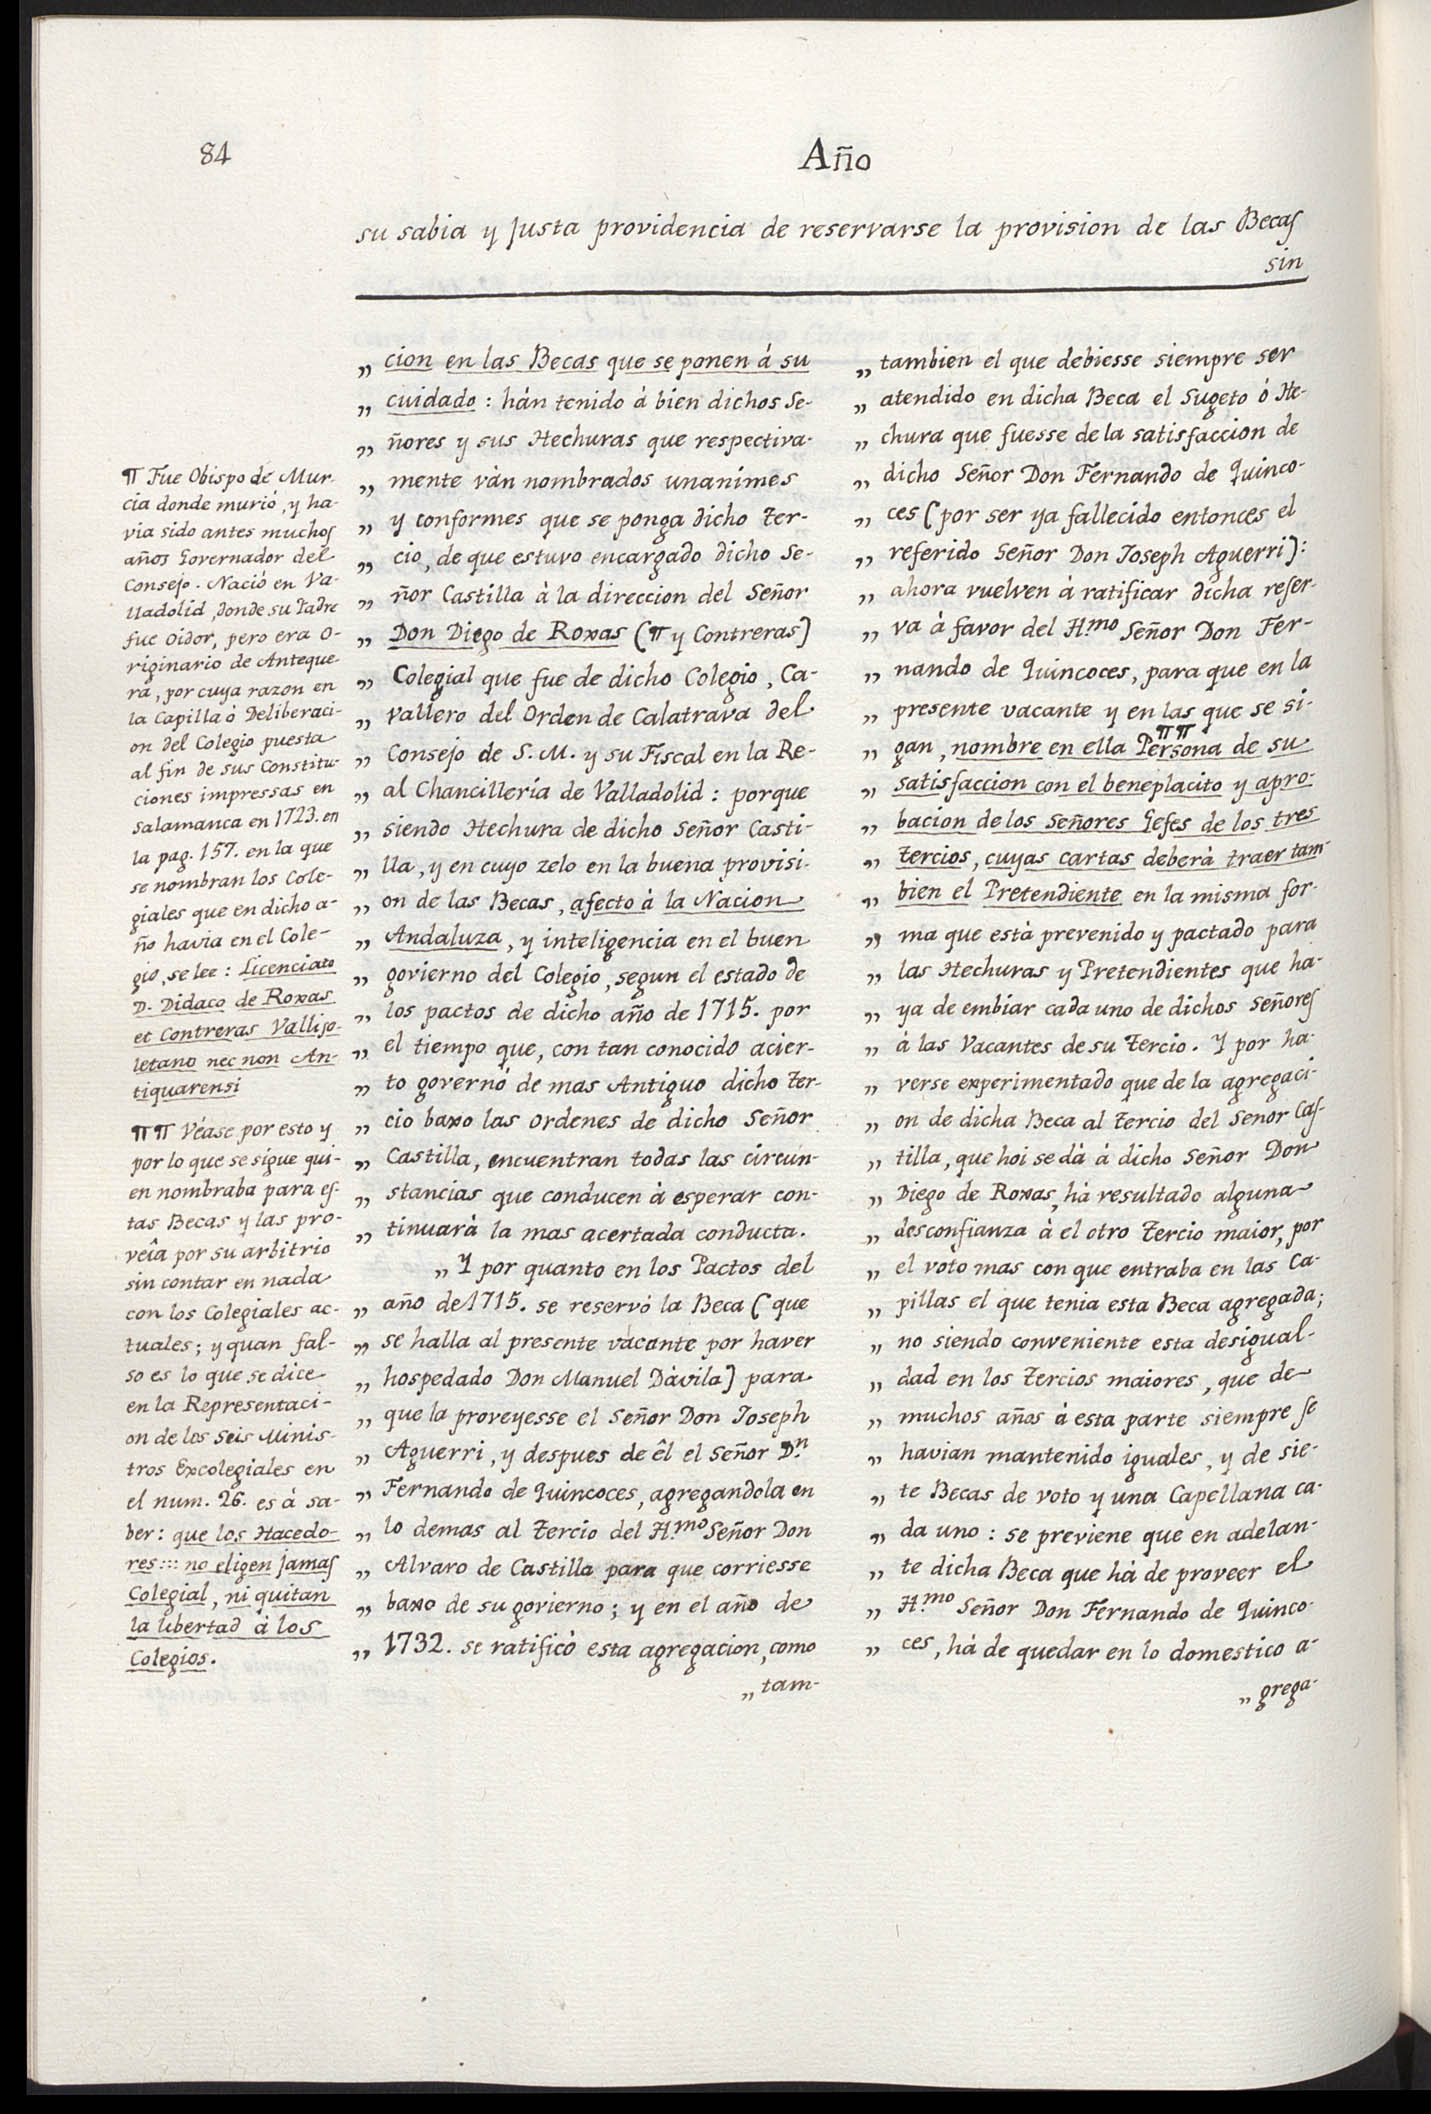 84
Año
su sabia y justa providencia de reservarse la provision de las Becas
sin
„ cion en las Becas que se ponen á su
„ cuidado : hán tenido á bien dichos Se-
„ ñores y sus Hechuras que respectiva-
„ mente ván nombrados unanimes
„ y conformes que se ponga dicho Ter-
„ cio, de que estuvo encargado dicho Se-
„ ñor Castilla à la direccion del Señor
„ Don Diego de Roxas (¶ y Contreras)
„ Colegial que fue de dicho Colegio, Ca-
„ vallero del Orden de Calatrava del
„ Consejo de S. M. y su Fiscal en la Re-
„ al Chancillería de Valladolid : porque
„ siendo Hechura de dicho Señor Casti-
„ lla, y en cuyo zelo en la buena provisi-
„ on de las Becas, afecto à la Nacion
„ Andaluza, y inteligencia en el buen
„ govierno del Colegio, segun el estado de
„ los pactos de dicho año de 1715. por
„ el tiempo que, con tan conocido acier-
„ to governó de mas Antiguo dicho Ter-
„ cio baxo las ordenes de dicho Señor
„ Castilla, encuentran todas las circun-
„ stancias que conducen à esperar con-
„ tinuarà la mas acertada conducta.
„ Y por quanto en los Pactos del
„ año de 1715. se reservó la Beca (que
„ se halla al presente vacante por haver
„ hospedado Don Manuel Dàvila) para
„ que la proveyesse el Señor Don Joseph
„ Aguerri, y despues de êl el Señor D.n
„ Fernando de Quincoces, agregandola en
„ lo demas al Tercio del H.mo Señor Don
„ Alvaro de Castilla para que corriesse
„ baxo de su govierno ; y en el año de
„ 1732. se ratificó esta agregacion, como
„ tam-
„ tambien el que debiesse siempre ser
„ atendido en dicha Beca el Sugeto ó He-
„ chura que fuesse de la satisfaccion de
„ dicho Señor Don Fernando de Quinco-
„ ces (por ser ya fallecido entonces el
„ referido Señor Don Joseph Aguerri):
„ ahora vuelven á ratificar dicha reser-
„ va à favor del H.mo Señor Don Fer-
„ nando de Quincoces, para que en la
„ presente vacante y en las que se si-
„ gan, nombre en ella ¶¶ Persona de su
„ satisfaccion con el beneplacito y apro-
„ bacion de los Señores Gefes de los tres
„ Tercios, cuyas cartas deberà traer tam-
„ bien el Pretendiente en la misma for-
„ ma que està prevenido y pactado para
„ las Hechuras y Pretendientes que ha-
„ ya de embiar cada uno de dichos Señores
„ á las Vacantes de su Tercio. Y por ha-
„ verse experimentado que de la agregaci-
„ on de dicha Beca al Tercio del Senor Cas-
„ tilla, que hoi se dà á dicho Señor Don
„ Diego de Roxas, há resultado alguna
„ desconfianza à el otro Tercio maior, por
„ el voto mas con que entraba en las Ca-
„ pillas el que tenia esta Beca agregada;
„ no siendo conveniente esta desigual-
„ dad en los Tercios maiores, que de
„ muchos años á esta parte siempre se
„ havian mantenido iguales, y de sie-
„ te Becas de voto y una Capellana ca-
„ da uno : se previene que en adelan-
„ te dicha Beca que há de proveer el
„ H.mo Señor Don Fernando de Quinco-
„ ces, há de quedar en lo domestico a-
„ grega-
¶ Fue Obispo de Mur-
cia donde murió, y ha-
via sido antes muchos
años Governador del
Consejo. Nació en Va-
lladolid, donde su Padre
fue Oidor, pero era O-
riginario de Anteque-
ra, por cuya razon en
la Capilla ó Deliberaci-
on del Colegio puesta
al fin de sus Constitu-
ciones impressas en
Salamanca en 1723. en
la pag. 157. en la que
se nombran los Cole-
giales que en dicho a-
ño havia en el Cole-
gio, se lee : Licenciato
D. Didaco de Roxas
et Contreras Valliso-
letano nec non An-
tiquarensi
¶¶ Véase por esto y
por lo que se sigue qui-
en nombraba para es-
tas Becas y las pro-
veîa por su arbitrio
sin contar en nada
con los Colegiales ac-
tuales ; y quan fal-
so es lo que se dice
en la Representaci-
on de los Seis Minis-
tros Excolegiales en
el num. 26. es á sa-
ber : que los Hacedo-
res ::: no eligen jamas
Colegial, ni quitan
la libertad à los
Colegios.